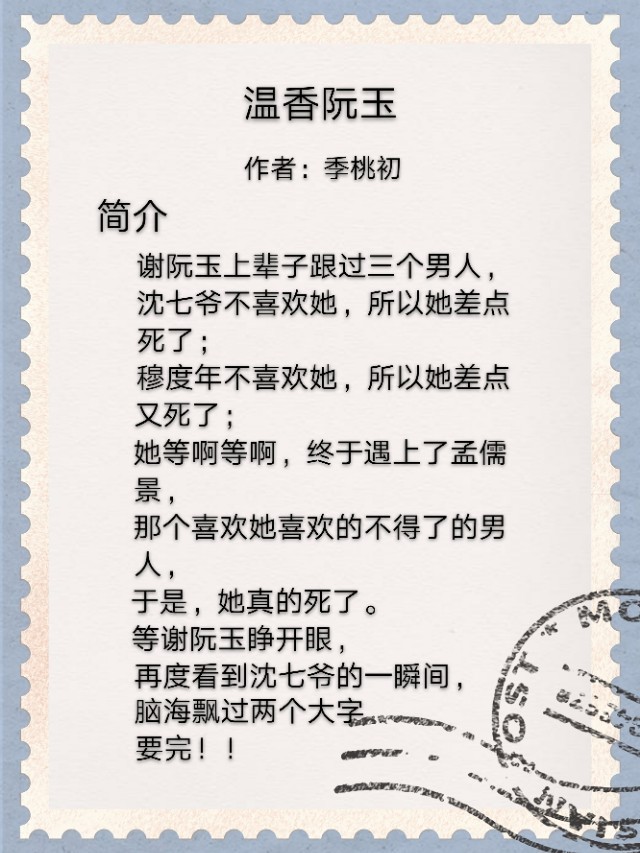 温香阮玉
作者：季桃初
简介
谢阮玉上辈子跟过三个男人，
沈七爷不喜欢她，所以她差点
死了；
穆度年不喜欢她，所以她差点
又死了；
她等啊等啊，终于遇上了孟儒
景，
那个喜欢她喜欢的不得了的男
人，
于是，她真的死了。
等谢阮玉睁开眼，
再度看到沈七爷的一瞬间，
脑海飘过两个大字
要完！！
POST * MO